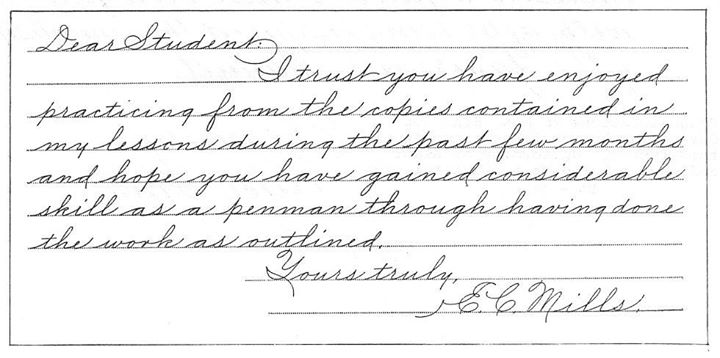 Dear Student:
I trust you have enjoyed
practicing from the copies contained in
my lessons during the past few months
and hope you have gained considerable
skill as a penman through having done
the work as outlined.
Yours truly,
E. C. Mills.